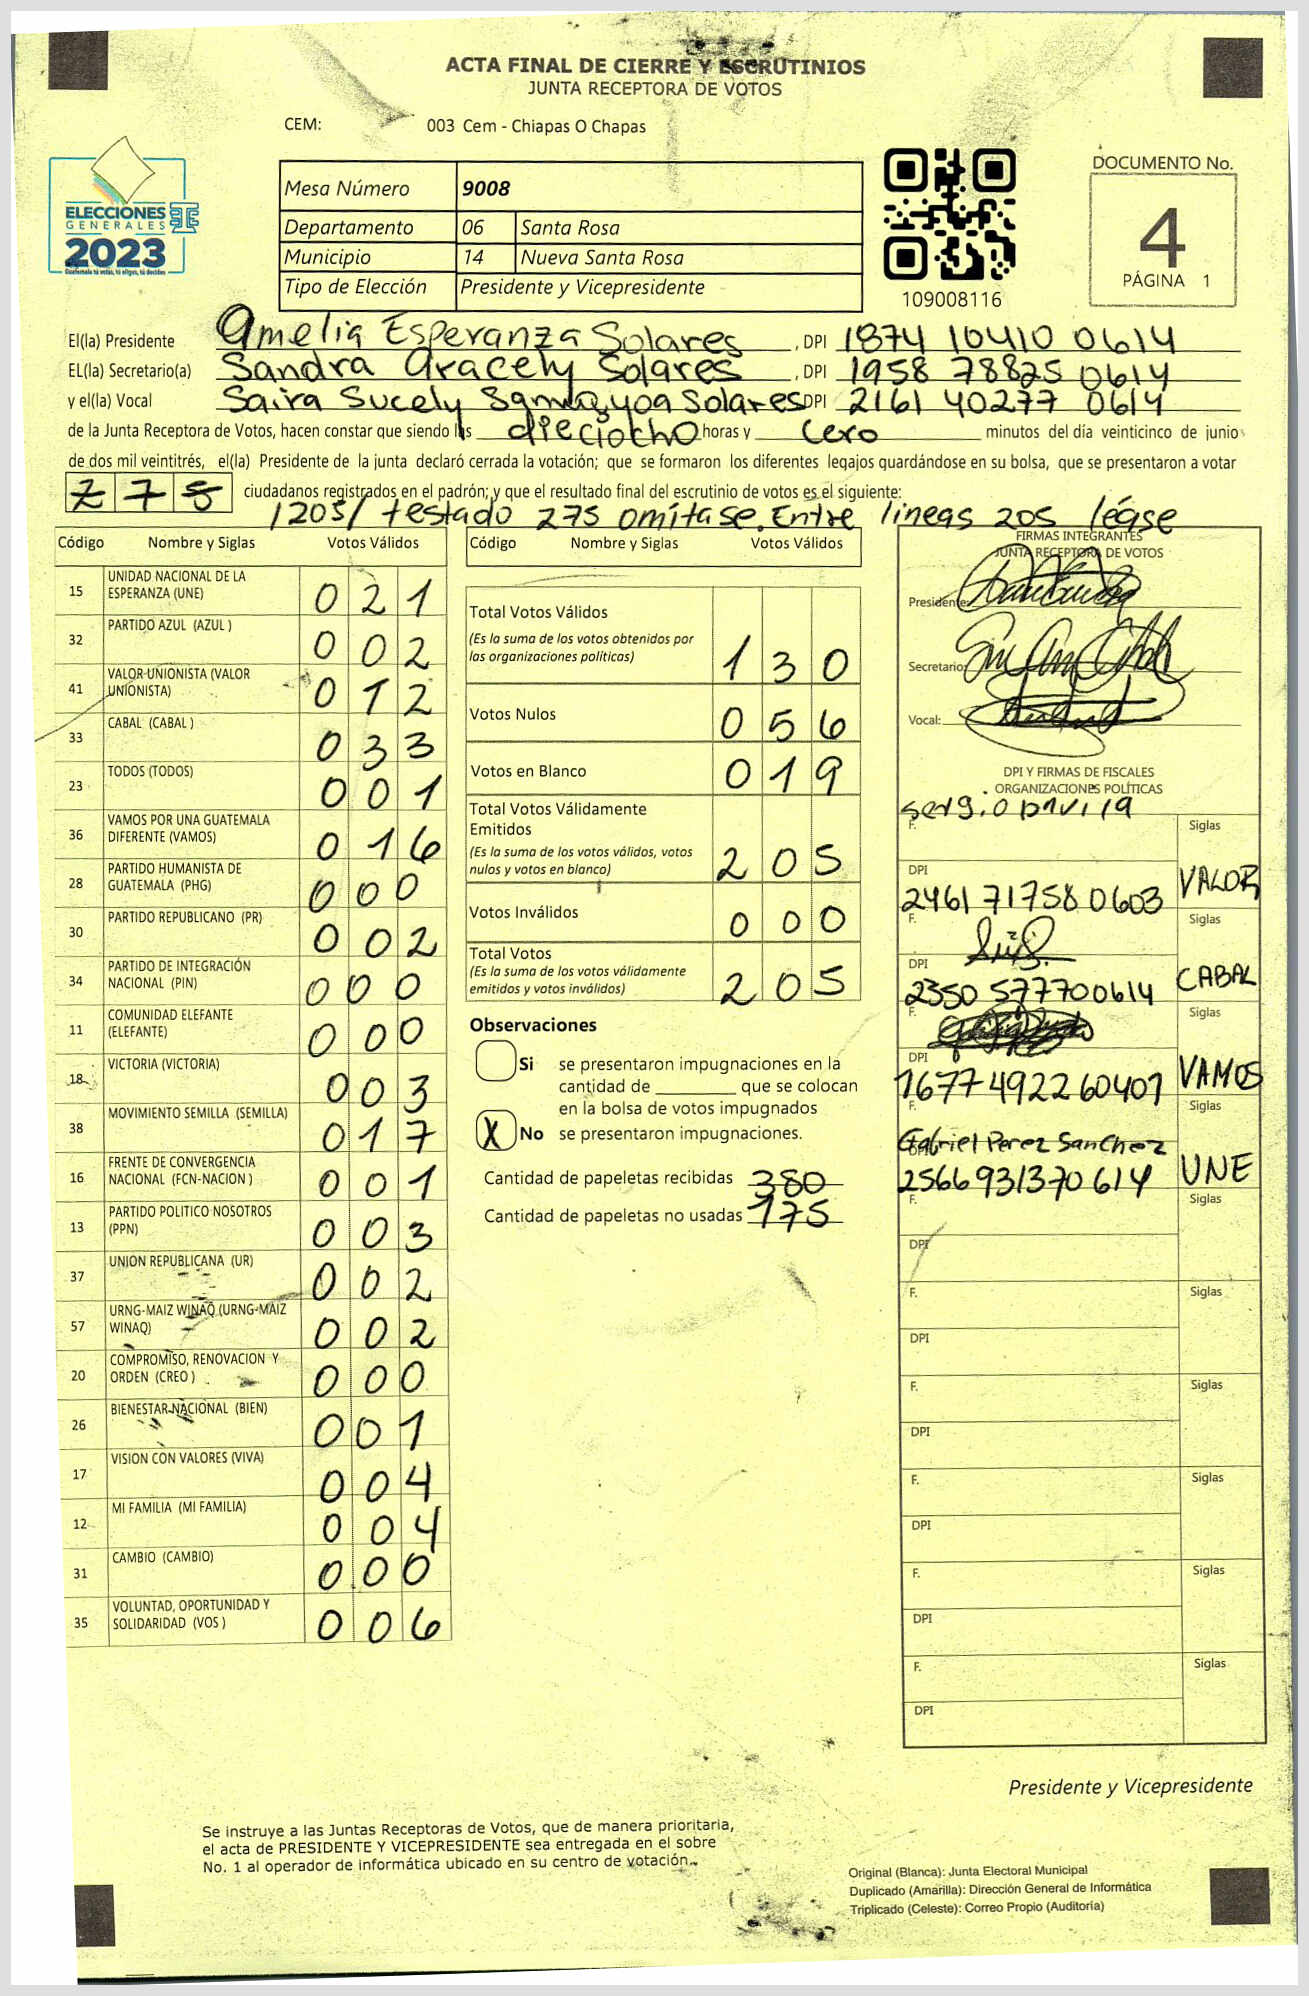 ACTA FINAL DE CIERRE Y ESCRUTINIOS
JUNTA RECEPTORA DE VOTOS
CEM: 003 Cem - Chiapas O Chapas
ELECCIONES
GENERALES
2023
Guatemala tú votas, tú eliges, tú decides
Mesa Número 9008
Departamento 06 Santa Rosa
Municipio 14 Nueva Santa Rosa
Tipo de Elección Presidente y Vicepresidente
109008116
DOCUMENTO No.
4
PÁGINA 1
El(la) Presidente Amelia Esperanza Solares , DPI 1874 10410 0614
EL(la) Secretario(a) Sandra Aracely Solares , DPI 1958 78825 0614
y el(la) Vocal Saira Sucely Samayoa Solares DPI 2161 40277 0614
de la Junta Receptora de Votos, hacen constar que siendo las dieciocho horas y cero minutos del día veinticinco de junio
de dos mil veintitrés, el(la) Presidente de la junta declaró cerrada la votación; que se formaron los diferentes legajos guardándose en su bolsa, que se presentaron a votar
275 ciudadanos registrados en el padrón; y que el resultado final del escrutinio de votos es el siguiente:
/205/ testado 275 omitase. Entre lineas 205 léase
Código Nombre y Siglas Votos Válidos
15 UNIDAD NACIONAL DE LA ESPERANZA (UNE) 021
32 PARTIDO AZUL (AZUL ) 002
41 VALOR-UNIONISTA (VALOR UNIONISTA) 012
33 CABAL (CABAL ) 033
23 TODOS (TODOS) 001
36 VAMOS POR UNA GUATEMALA DIFERENTE (VAMOS) 016
28 PARTIDO HUMANISTA DE GUATEMALA (PHG) 000
30 PARTIDO REPUBLICANO (PR) 002
34 PARTIDO DE INTEGRACIÓN NACIONAL (PIN) 000
11 COMUNIDAD ELEFANTE (ELEFANTE) 000
18 VICTORIA (VICTORIA) 003
38 MOVIMIENTO SEMILLA (SEMILLA) 017
16 FRENTE DE CONVERGENCIA NACIONAL (FCN-NACION ) 001
13 PARTIDO POLITICO NOSOTROS (PPN) 003
37 UNION REPUBLICANA (UR) 002
57 URNG-MAIZ WINAQ (URNG-MAIZ WINAQ) 002
20 COMPROMISO, RENOVACION Y ORDEN (CREO ) 000
26 BIENESTAR NACIONAL (BIEN) 001
17 VISION CON VALORES (VIVA) 004
12 MI FAMILIA (MI FAMILIA) 004
31 CAMBIO (CAMBIO) 000
35 VOLUNTAD, OPORTUNIDAD Y SOLIDARIDAD (VOS ) 006
Código Nombre y Siglas Votos Válidos
Total Votos Válidos
(Es la suma de los votos obtenidos por
las organizaciones políticas) 130
Votos Nulos 056
Votos en Blanco 019
Total Votos Válidamente
Emitidos
(Es la suma de los votos válidos, votos
nulos y votos en blanco) 205
Votos Inválidos 000
Total Votos
(Es la suma de los votos válidamente
emitidos y votos inválidos) 205
Observaciones
Si se presentaron impugnaciones en la
cantidad de ________ que se colocan
en la bolsa de votos impugnados
X No se presentaron impugnaciones.
Cantidad de papeletas recibidas 380
Cantidad de papeletas no usadas 175
FIRMAS INTEGRANTES
JUNTA RECEPTORA DE VOTOS
Presidente:
Secretario:
Vocal:
DPI Y FIRMAS DE FISCALES
ORGANIZACIONES POLÍTICAS
Sergio Davila
F. Siglas
DPI 2461 71758 0603 VALOR
F. Siglas
DPI 2350 57770 0614 CABAL
F. Siglas
DPI 1677 49226 0401 VAMOS
F. Siglas
Gabriel Perez Sanchez
DPI 2566931370614 UNE
F. Siglas
DPI
F. Siglas
DPI
F. Siglas
DPI
F. Siglas
DPI
F. Siglas
DPI
F. Siglas
DPI
Presidente y Vicepresidente
Se instruye a las Juntas Receptoras de Votos, que de manera prioritaria,
el acta de PRESIDENTE Y VICEPRESIDENTE sea entregada en el sobre
No. 1 al operador de informática ubicado en su centro de votación.
Original (Blanca): Junta Electoral Municipal
Duplicado (Amarilla): Dirección General de Informática
Triplicado (Celeste): Correo Propio (Auditoría)